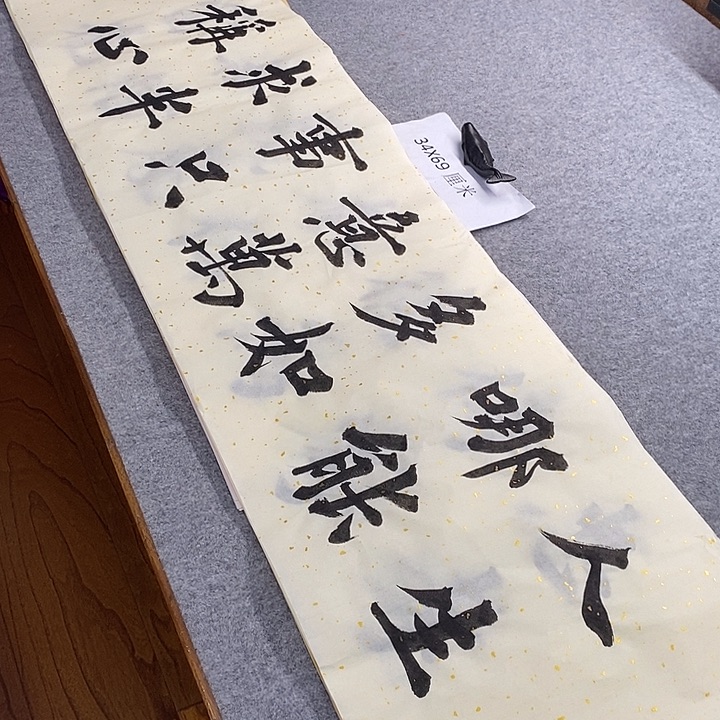 人生
哪能
多如
意萬
事只
求半
稱心
34X69 厘米